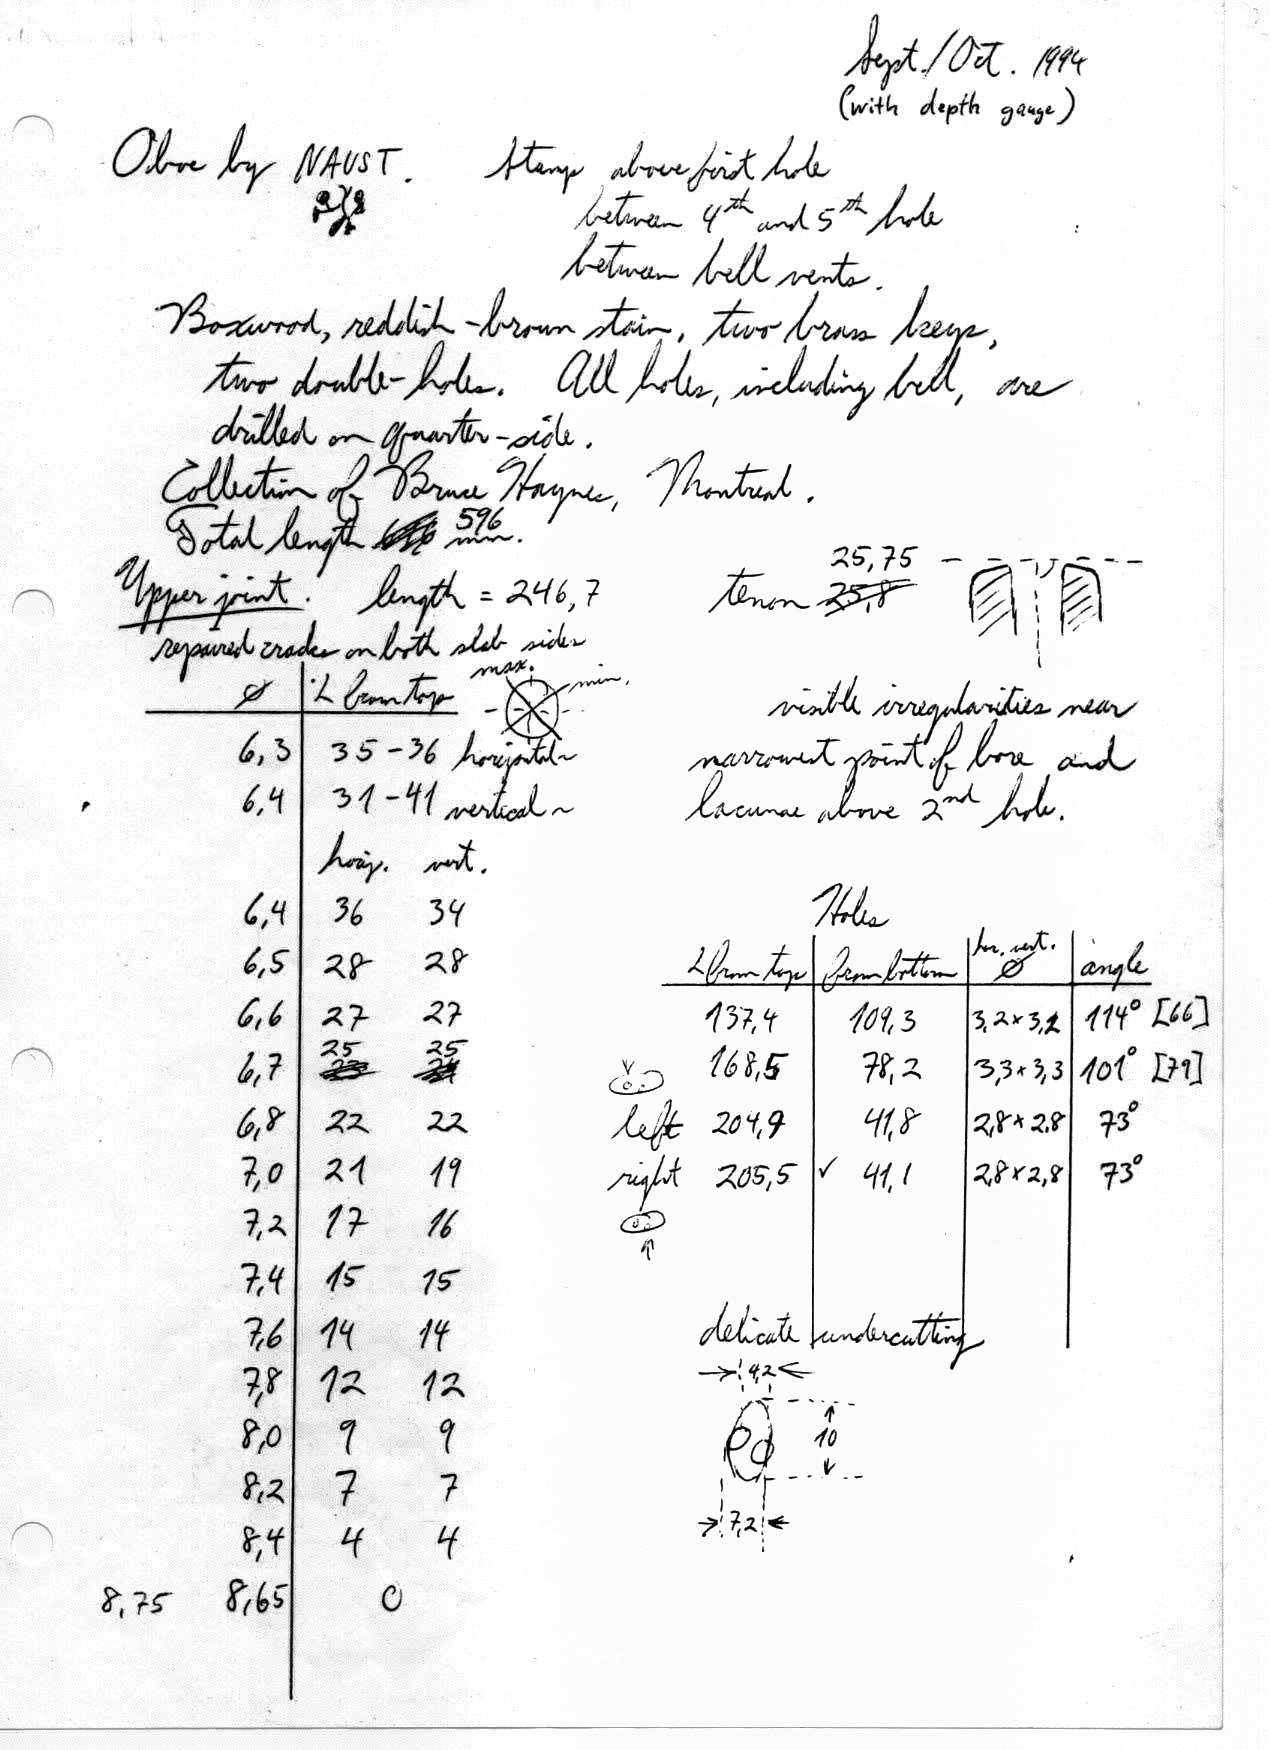 Sept./Oct. 1994
(with depth gauge)
Oboe by NAUST. Stamp above first hole
between 4th and 5th hole
between bell vents.
Boxwood, reddish-brown stain, two brass keys,
two double-holes. All holes, including bell, are
drilled on quarter-side.
Collection of Bruce Haynes, Montreal.
Total length 596 mm.
Upper joint. length = 246,7
tenon 25,8 25,75
repaired cracks on both slab sides
max. min.
Ø L from top
6,3 35-36 horizontal
6,4 31-41 vertical
horiz. vert.
6,4 36 34
6,5 28 28
6,6 27 27
6,7 25 25
6,8 22 22
7,0 21 19
7,2 17 16
7,4 15 15
7,6 14 14
7,8 12 12
8,0 9 9
8,2 7 7
8,4 4 4
8,75 8,65 0
visible irregularities near
narrowest point of bore and
lacunae above 2nd hole.
Holes
L from top from bottom hor. vert. Ø angle
137,4 109,3 3,2×3,2 114° [66]
168,5 78,2 3,3×3,3 101° [79]
left 204,9 41,8 2,8×2,8 73°
right 205,5 ✓ 41,1 2,8×2,8 73°
delicate undercutting
4,2
10
7,2